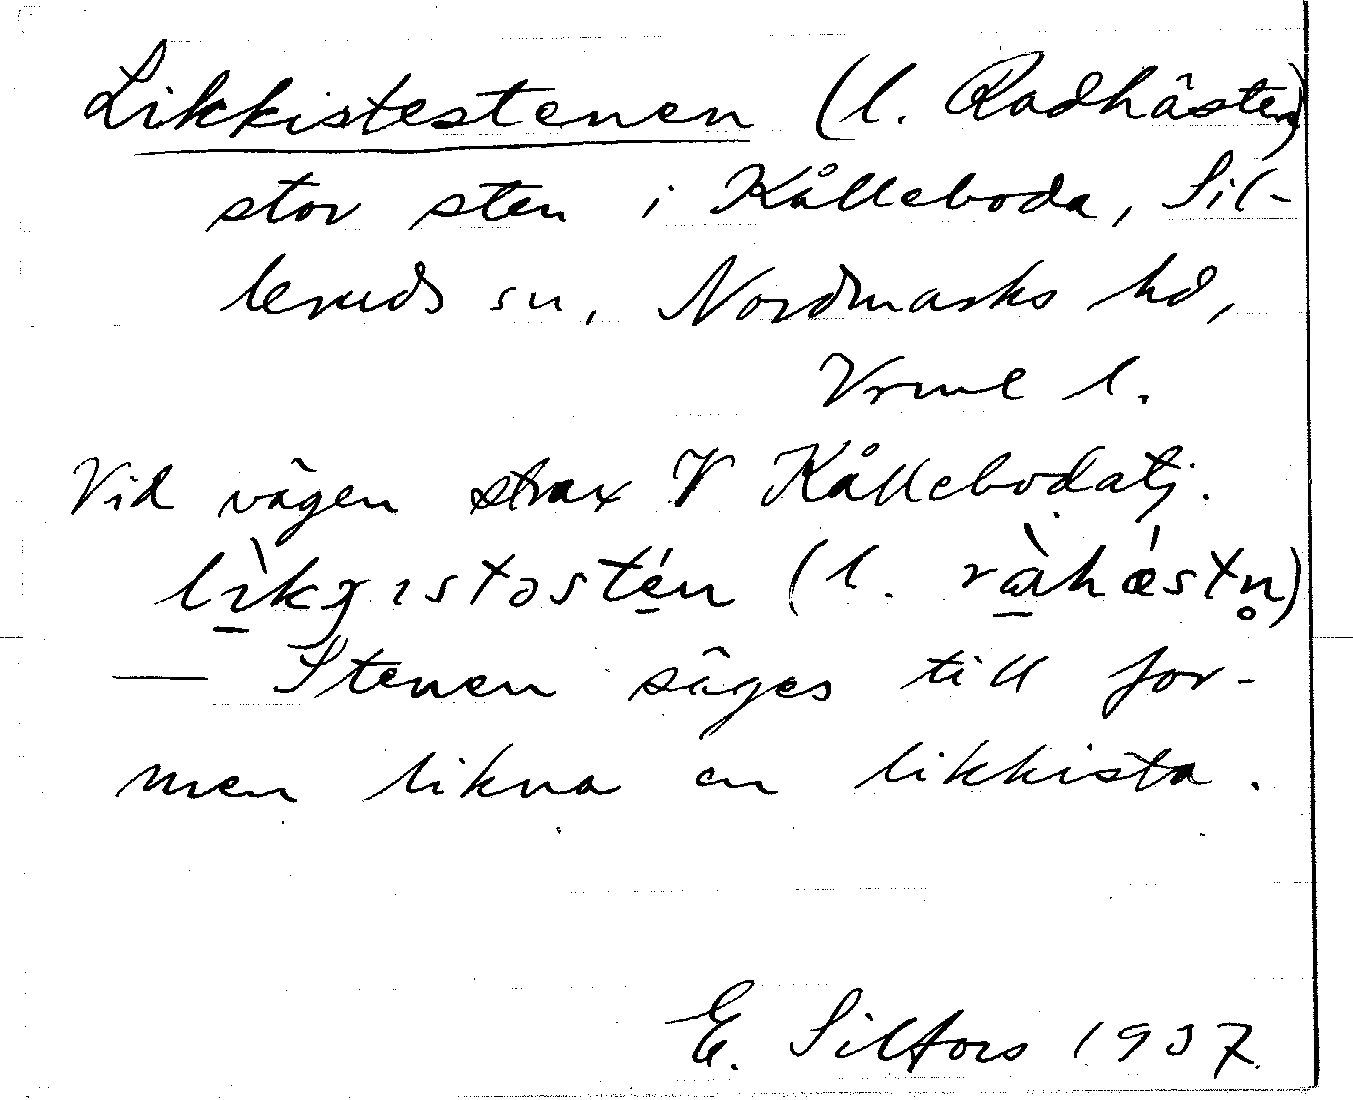 Likkistestenen (l. Radhästen)
stor sten i Kålleboda, Sil-
leruds sn, Nordmarks hd,
Vrml l.
Vid vägen strax V Kållebodatj.
lìkgɪstəstén (l. ràhǽstn̥)
— Stenen säges till for-
men likna en likkista.
E. Silfors 1937.